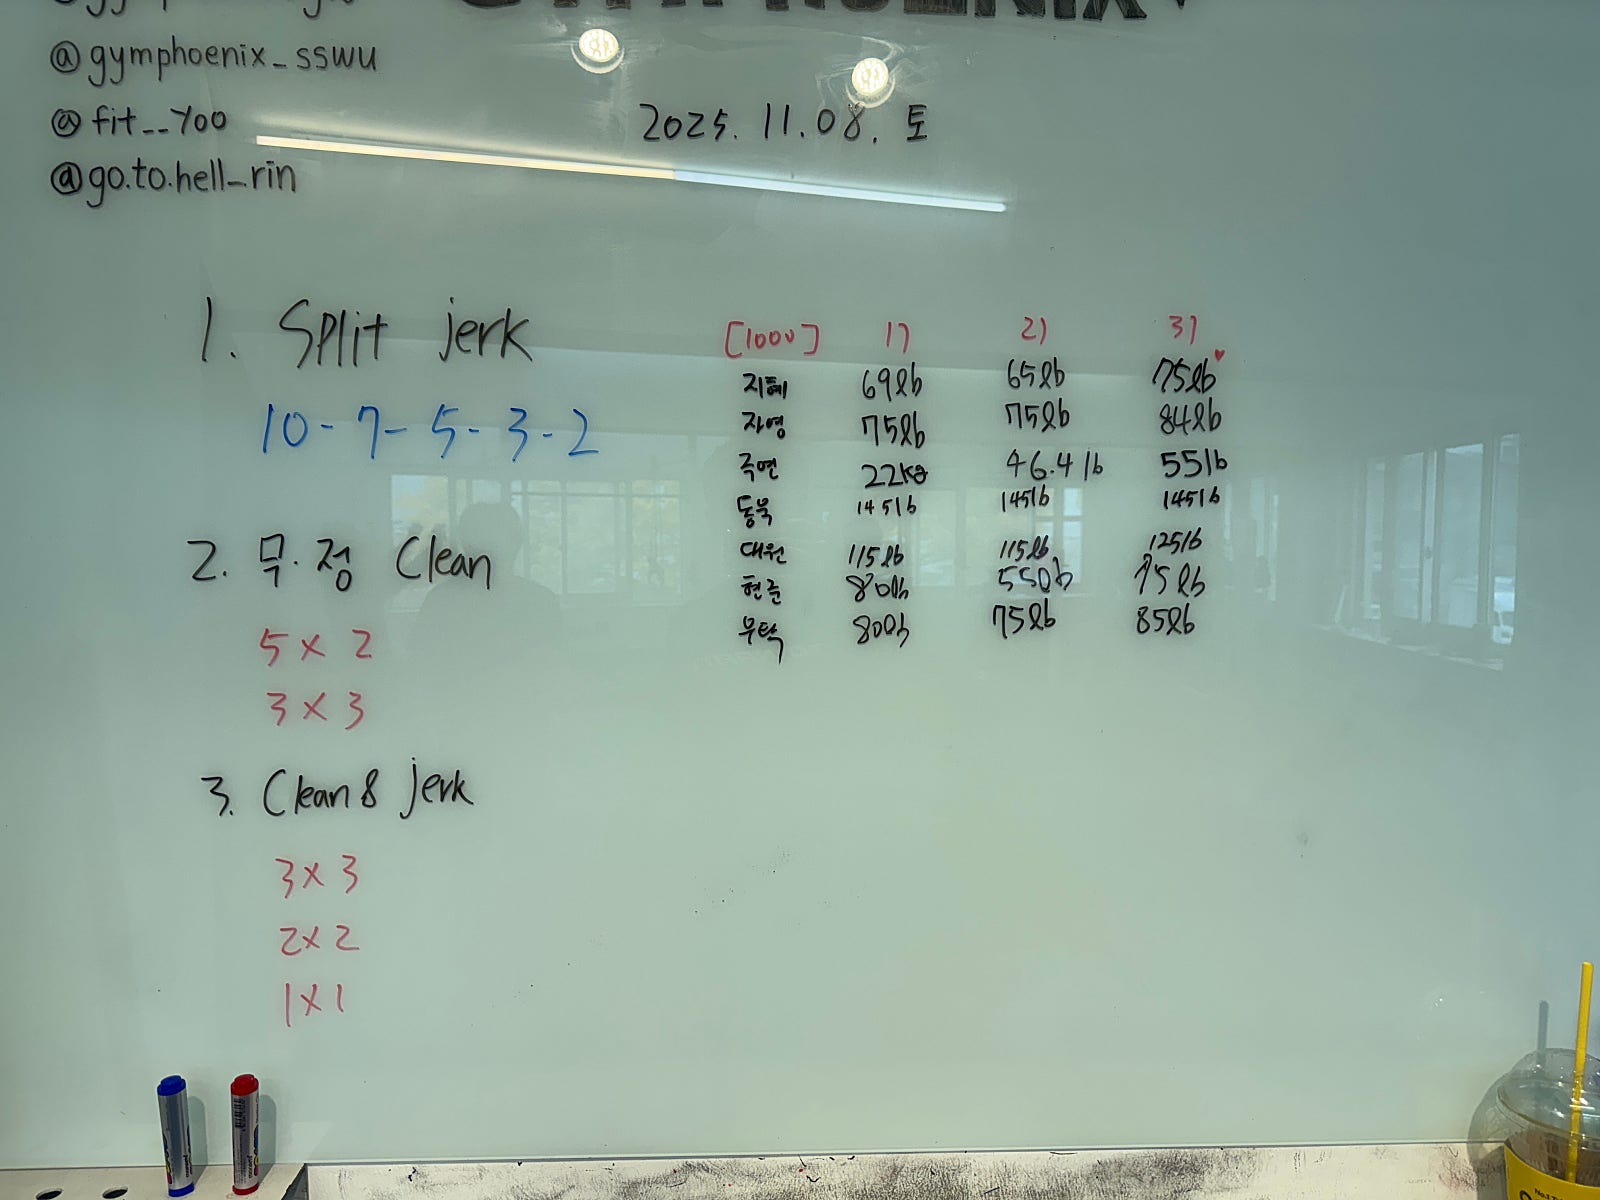 @gymphoenix_sswu
@fit__yoo
@go.to.hell_rin
2025. 11. 08. 토
1. Split jerk
10-7-5-3-2
2. 무.정 Clean
5 x 2
3 x 3
3. Clean & jerk
3 x 3
2 x 2
1 x 1
[1000] 1) 2) 3)
지혜 69lb 65lb 75lb♥
자영 75lb 75lb 84lb
주연 22kg 46.4lb 55lb
동욱 145lb 145lb 145lb
대원 115lb 115lb 125lb
현준 80lb 550lb 75lb
무탁 80lb 75lb 85lb